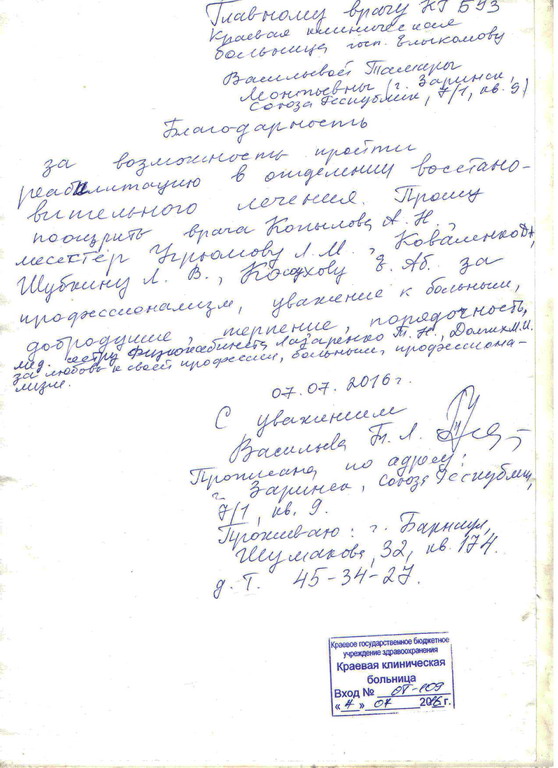 Главному врачу КГБУЗ
Краевая клиническая
больница госп. Елыкомову
Васильевой Тамары
(г. Заринск,
Союза Республик, 7/1, кв. 9)
Благодарность
за возможность пройти
реабилитацию в отделении восстано-
вительного лечения. Прошу
поощрить врача Копылова А. Н.,
месестёр Угрюмову Л. М., Коваленко
Шубкину Л. В., за
профессионализм, уважение к больным,
добродушие, терпение, порядочность,
мед. сестру физиокабинета Лазаренко Т. Н., Долгих М. И.
за любовь к своей профессии, больным, профессиона-
лизм.
07.07.2016 г.
С уважением
Васильева Т. Л.
Прописана по адресу:
г. Заринск, Союза Республик,
7/1, кв. 9.
Проживаю: г. Барнаул,
Шумакова, 32, кв. 174.
д. т. 45-34-27.
Краевое государственное бюджетное
учреждение здравоохранения
Краевая клиническая
больница
Вход № ОГ-109
«7» 07 2016 г.